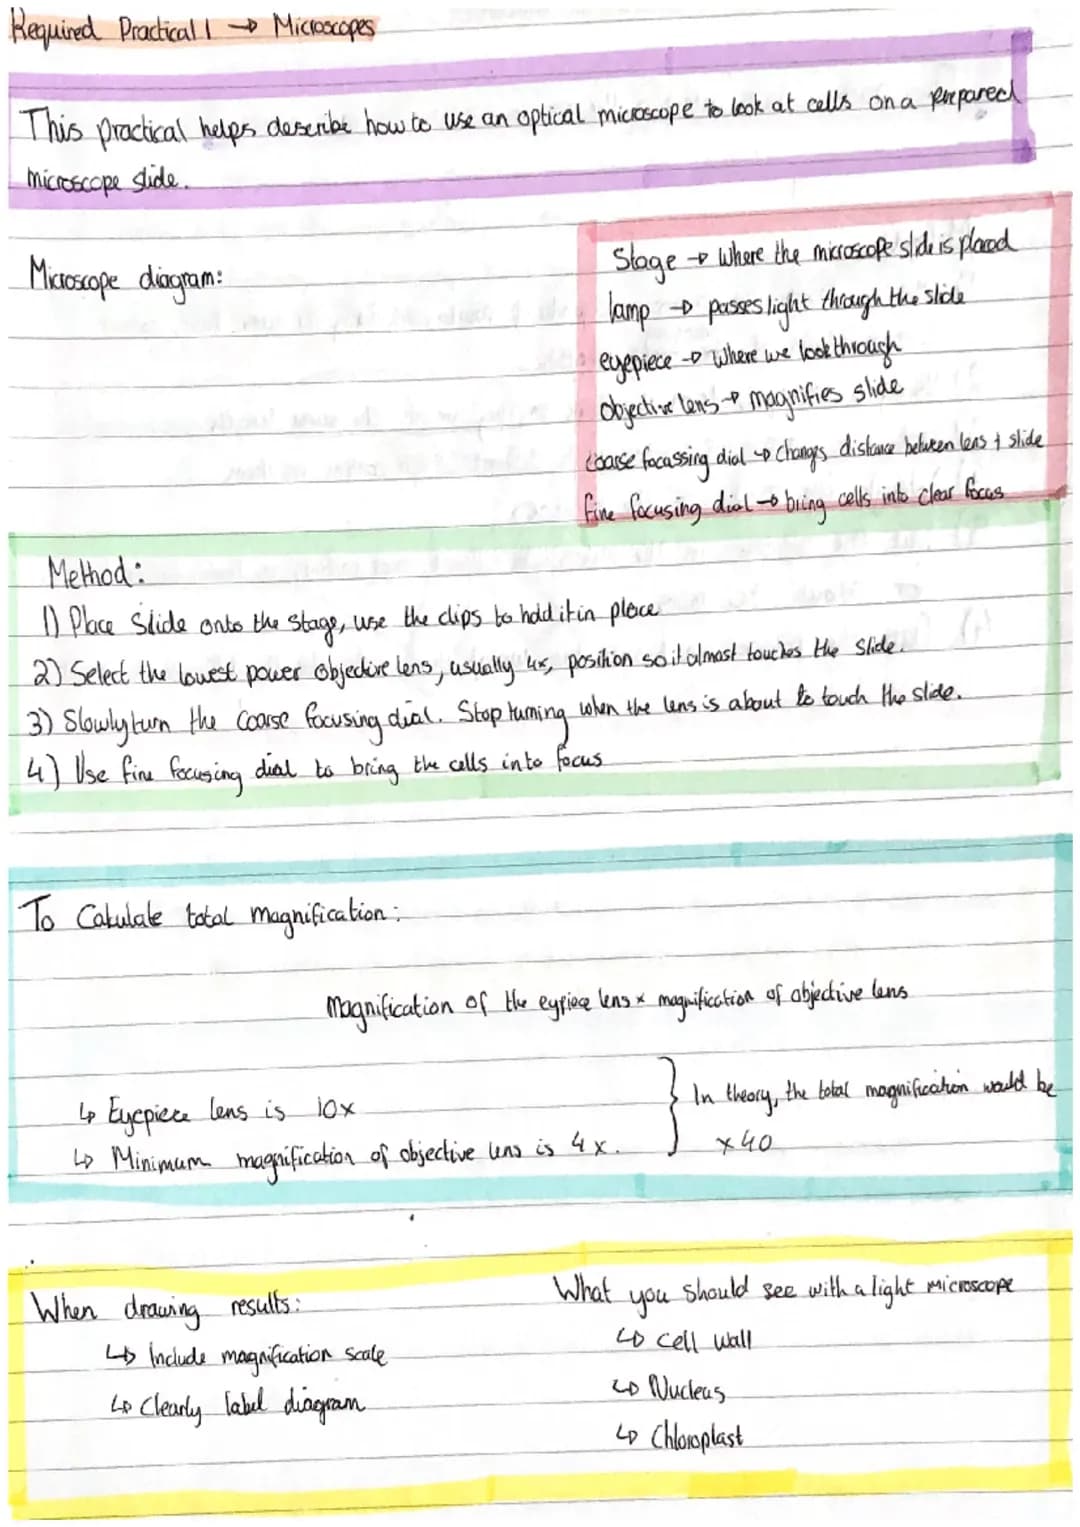 Required Practical 1 → Microscopes
This practical helps describe how to use an optical microscope to look at cells on a prepared
microscope slide.
Microscope diagram:
Stage → Where the microscope slide is placed
lamp → passes light through the slide
eyepiece → Where we look through
objective lens → magnifies slide
coarse focassing dial → changes distance between lens + slide
fine focusing dial → bring cells into clear focus
Method:
1) Place Slide onto the stage, use the clips to hold it in place
2) Select the lowest power objective lens, usually 4x, position so it almost touches the slide.
3) Slowly turn the coarse focusing dial. Stop turning when the lens is about to touch the slide.
4) Use fine focusing dial to bring the cells into focus
To Calculate total magnification:
Magnification of the eypiece lens x magnification of objective lens
↳ Eyepiece lens is 10x
↳ Minimum magnification of objective lens is 4x.
} In theory, the total magnification would be
x40
When drawing results:
↳ Include magnification scale
↳ Clearly label diagram
What you should see with a light microscope
↳ cell wall
↳ Nucleus
↳ Chloroplast